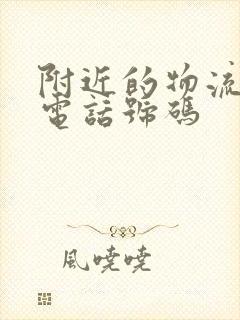 附近的物流
電話號碼
風曉曉